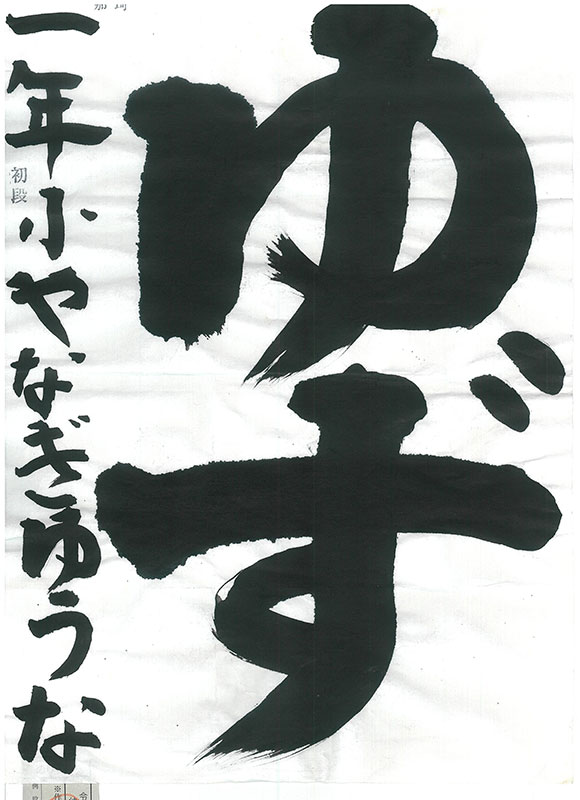 ゆず
一年小やなぎゆうな
初段